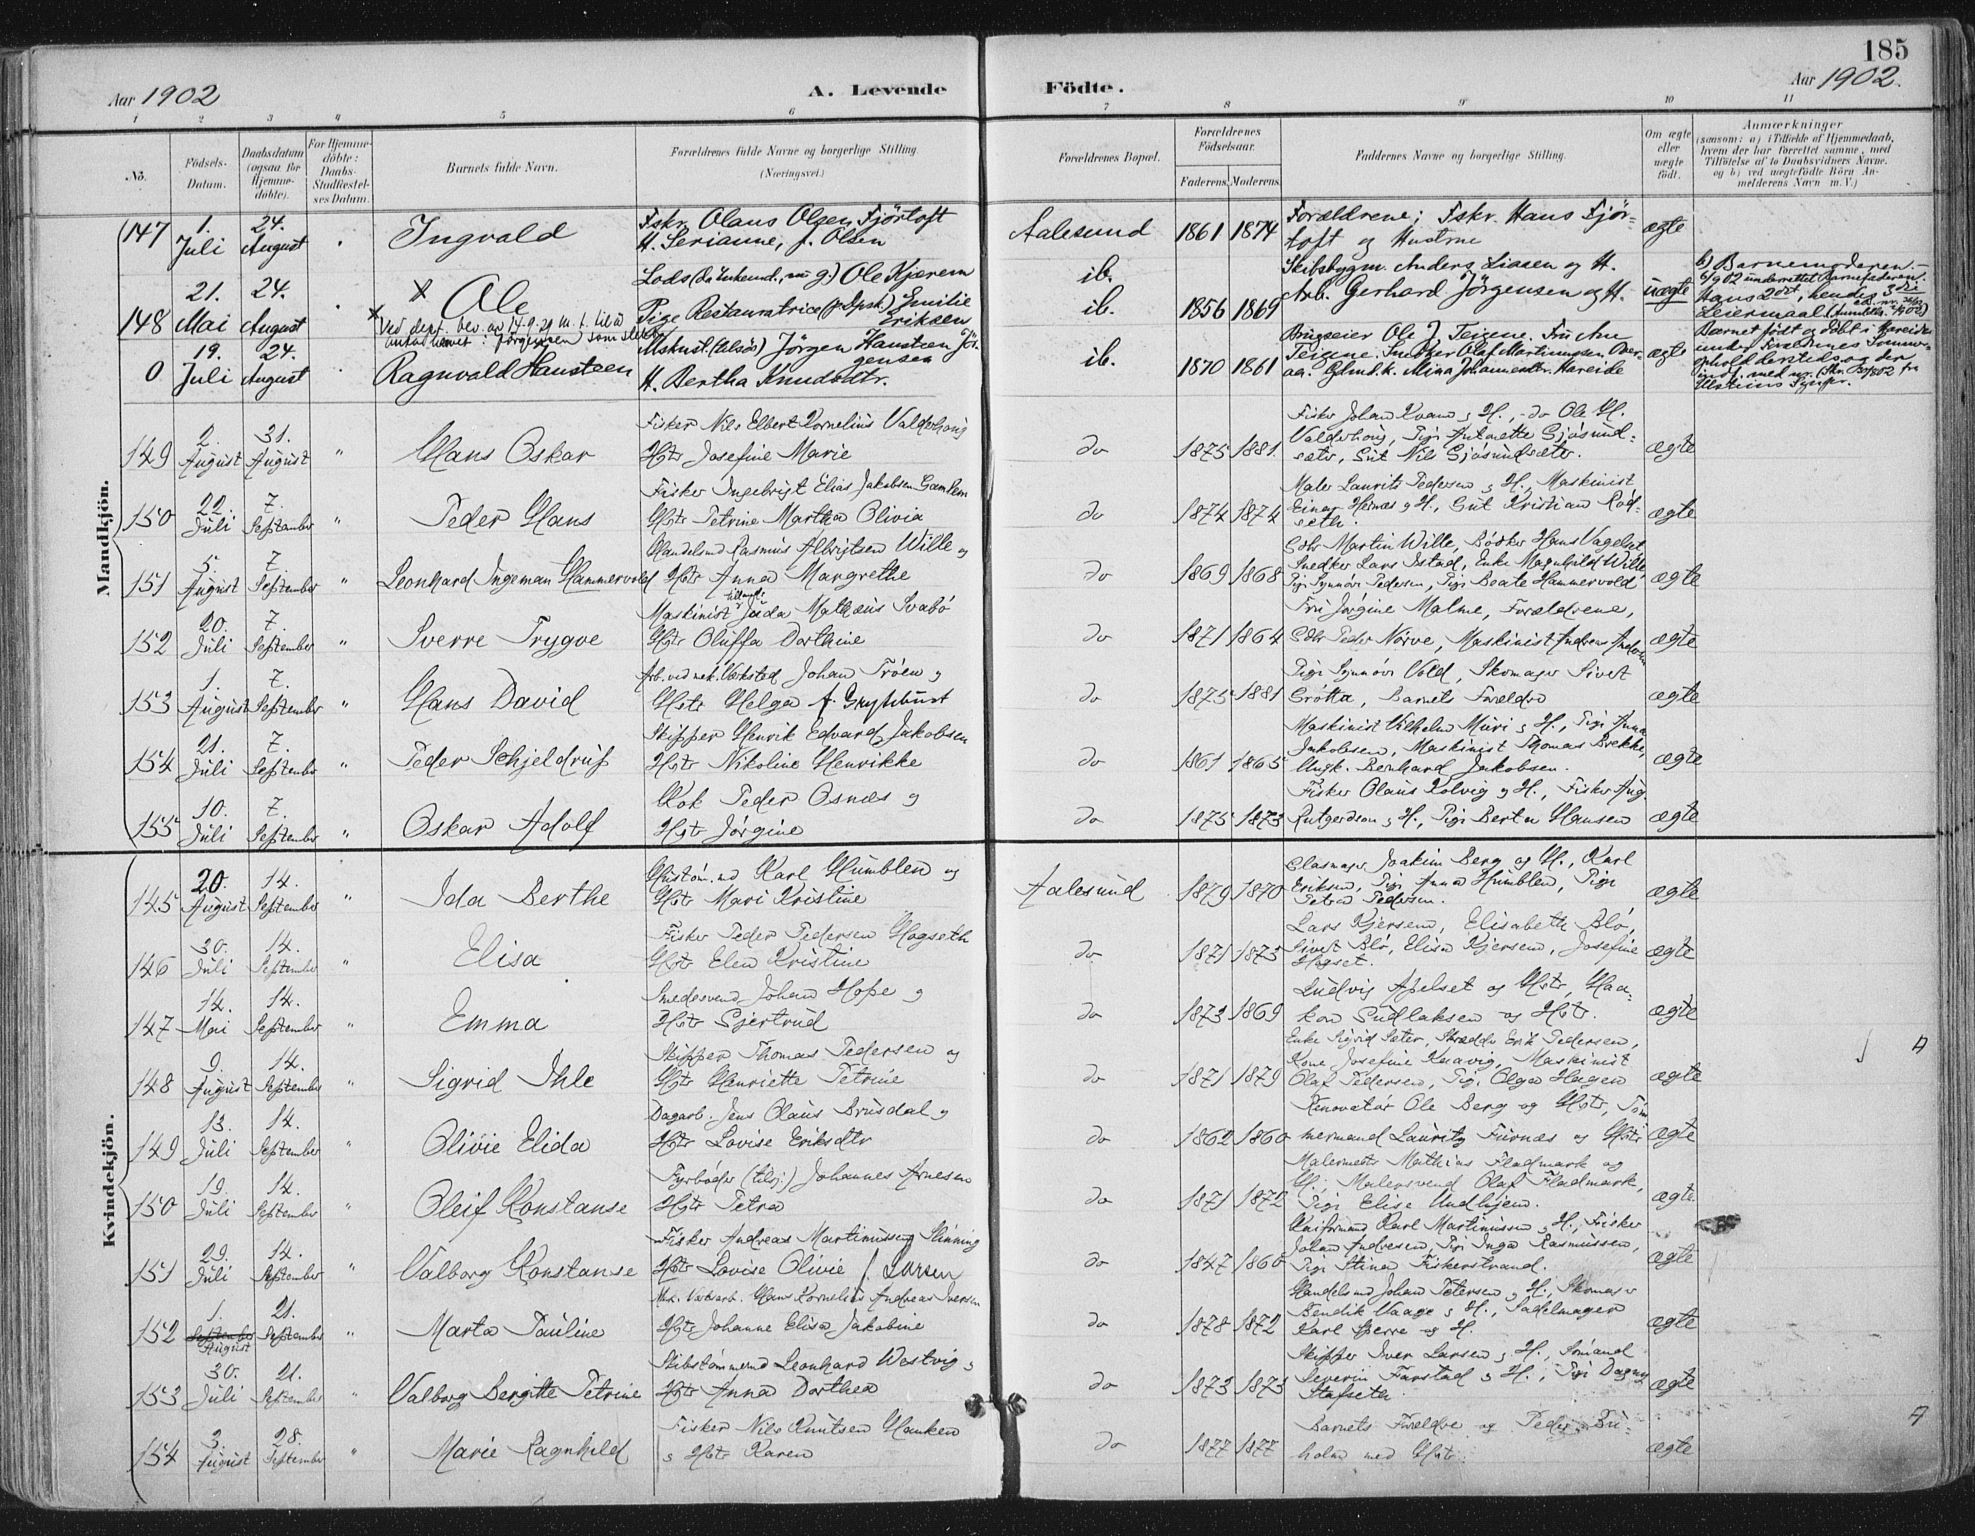 185
Aar 1902
A. Levende
Födte.
Aar 1902.
1 2 3 4 5 6 7 8 9 10 11
No.
Födsels-Datum.
Daabsdatum (ogsaa for Hjemmedöbte).
For Hjemmedöbte: Daabs-Stadfæstelses Datum.
Barnets fulde Navn.
Forældrenes fulde Navne og borgerlige Stilling. (Næringsvei.)
Forældrenes Bopæl.
Forældrenes Födselsaar.
Faderens. Moderens.
Faddernes Navne og borgerlige Stilling.
Om ægte eller uægte födt.
Anmærkninger
(saasom: a) i Tilfælde af Hjemmedaab, hvem der har forrettet samme, med Tilföielse af to Daabsvidners Navne, og b) ved uægtefödte Börn Anmelderens Navn m. V.)
Mandkjön.
147 1. Juli 24. August " Ingvald
Fskr. Olaus Olsen Fjörtoft
H. Serianne, f. Olsen
Aalesund 1861 1874
Forældrene; Fskr. Hans Fjör-
toft og Hustru
ægte
148 21. Mai 24. August " Ole
Lods Ole Kjærem
Pige Restauratrice Emilie
Eriksen
ib.
ib. 1856 1869
Skibsbygm. Anders Liasen og H.
Arb. Gerhard Jörgensen og H.
uægte
b) Barnemoderen.
0 19. Juli 24. August " Ragnvald Haustsen
Jörgen Haustsen Jör-
gensen
H. Bertha Knudsdtr.
ib. 1870 1861
Brugseier Ole J. Teigene. Fru Ane
Teigene. Snedker Olaf Martinussen
Mina Johannesdtr. Hareide
ægte
Barnet født og døbt i Hareide
under Forældrenes Sommer-
ophold
149 2. August 31. August " Hans Oskar
Fisker Nils Elbert Kornelius Valderhaug
Hstr Josefine Marie
do 1875 1881.
Fisker Johan Kvam & H., do Ole H.
Valderhaug, Pige Antonette Gjøsund-
sæter, Gut Nils Gjøsundsæter.
ægte
150 22. Juli 7. September " Peder Hans
Fisker Ingebrigt Elias Jakobsen Gamlem
Hstr Petrine Martha Olivia
do 1874 1874
Maler Laurits Pedersen & H., Maskinist
Einar Hesnæs & H., Gut Kristian Rød-
seth.
ægte
151 5. August 7. September " Leonhard Ingeman Hammervold
Handelsmd Rasmus Albrigtsen Wille og
Hstr Anna Margrethe
do 1869 1868
Gdbr Martin Wille, Bødker Hans Vagelset
Snedker Lars Istad, Enke Magnhild Wille
Pige Synnøve Pedersen, Pige Beate Hammervold
ægte
152 20. Juli 7. September " Sverre Trygve
Maskinist Juda Mathæus Svabø
Hstr Oluffa Dorthine
do 1871 1864
Fru Jørgine Malme, Forældrene,
Gdbr Peder Nørve, Maskinist Andreas
ægte
153 1. August 7. September " Hans David
Arb. ved mek. Værksted Johan Trøen &
Hstr Helga f. Grythüst
do 1875 1881
Pige Synnøve Vold, Skomager Sivert
Grøtta, Barnets Forældre
ægte
154 21. Juli 7. September " Peder Schjeldrup
Skipper Henrik Edvard Jakobsen
Hstr Nikoline Henrikke
do 1861 1865
Maskinist Vilhelm Muri & H., Pige Anna
Jakobsen, Maskinist Thomas Brekke,
Ungk. Bernhard Jakobsen.
ægte
155 10. Juli 7. September " Oskar Adolf
Kok Peder Osnæs &
Hstr Jørgine
do 1875 1873
Fisker Olaus Kolvig & H., Fisker Aug.
Rutgerdsen & H., Pige Berta Hansen
ægte
Kvindekjön.
145 20. August 14. September " Ida Berthe
Hustøm.md Karl Humblen og
Hstr Mari Kristine
Aalesund 1879 1870
Glasmager Joakim Berg og H., Karl
Eriksen, Pige Anna Humblen, Pige
Petra Pedersen.
ægte
146 30. Juli 14. September " Elisa
Fisker Peder Pedersen Hogseth
Hstr Elen Kristine
do 1871 1873
Lars Kjersem, Elisabeth Blø,
Sivert Blø, Elisa Kjersem, Josefine
Hogset.
ægte
147 14. Mai 14. September " Emma
Smedesvend Johan Hope &
Hstr Gjertrud
do 1873 1869
Ludvig Apelset og Hstr, Haa-
kon Gudlaksen og Hstr.
ægte
148 9. August 14. September " Sigrid Ihle
Skipper Thomas Pedersen og
Hstr Henriette Petrine
do 1871 1879
Enke Sigrid Sæter, Skrædder Erik Pedersen,
Kone Josefine Knavig, Maskinist
Olaf Pedersen, Pige Olga Hagen
ægte
149 13. Juli 14. September " Olivie Elida
Dagarb. Jens Olaus Brusdal &
Hstr Lovise Eriksdtr
do 1862 1860
Renovatør Ole Berg og Hstr, Tøm-
mermand Lauritz Furnæs og Hstr
ægte
150 19. Juli 14. September " Oleif Konstanse
Fyrbøder Johannes Arnesen
Hstr Petra
do 1871 1872
Malermester Mathias Fladmark og
H., Malersvend Olaf Fladmark,
Pige Elise Undhjem.
ægte
151 29. Juli 14. September " Valborg Konstanse
Fisker Andreas Martinussen Slinning
Hstr Lovise Olivie f. Larsen
do 1847 1860
Karl Martinussen & H., Fisker
Johan Andresen, Pige Inga Rasmussen,
Pige Stina Fiskerstrand.
ægte
152 1. September August 21. September " Marta Pauline
Mek. Værkarb. Hans Kornelius Andreas Iversen
Hstr Johanne Elisa Jakobine
do 1878 1872
Handelsmd Johan Petersen & H., Skomager
Bendik Vaage & H., Sadelmager
Karl Sperre og H.
ægte
153 30. Juli 21. September " Valborg Bergitte Petrine
Skibstømmermd Leonhard Westvig &
Hstr Anna Dorthea
do 1873 1873
Skipper Iver Larsen & H., Sømand
Severin Farstad & H., Pige Dagny
Stafseth.
ægte
154 3. August 28. September " Marie Ragnhild
Fisker Nils Knutsen Hanken
& Hstr Karen
do 1877 1877
Barnets Forældre og Peder Bri-
holm med Hstr.
ægte